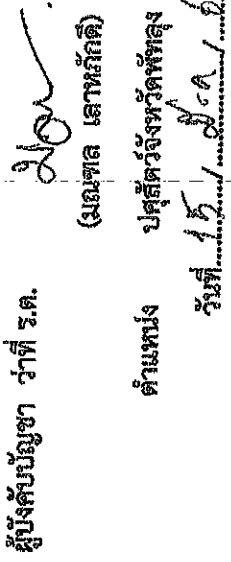 ผู้บังคับบัญชา ว่าที่ ร.ต.
(มณฑล เลาหภักดี)
ตำแหน่ง ปศุสัตว์จังหวัดพัทลุง
วันที่ 15 / มี.ค /